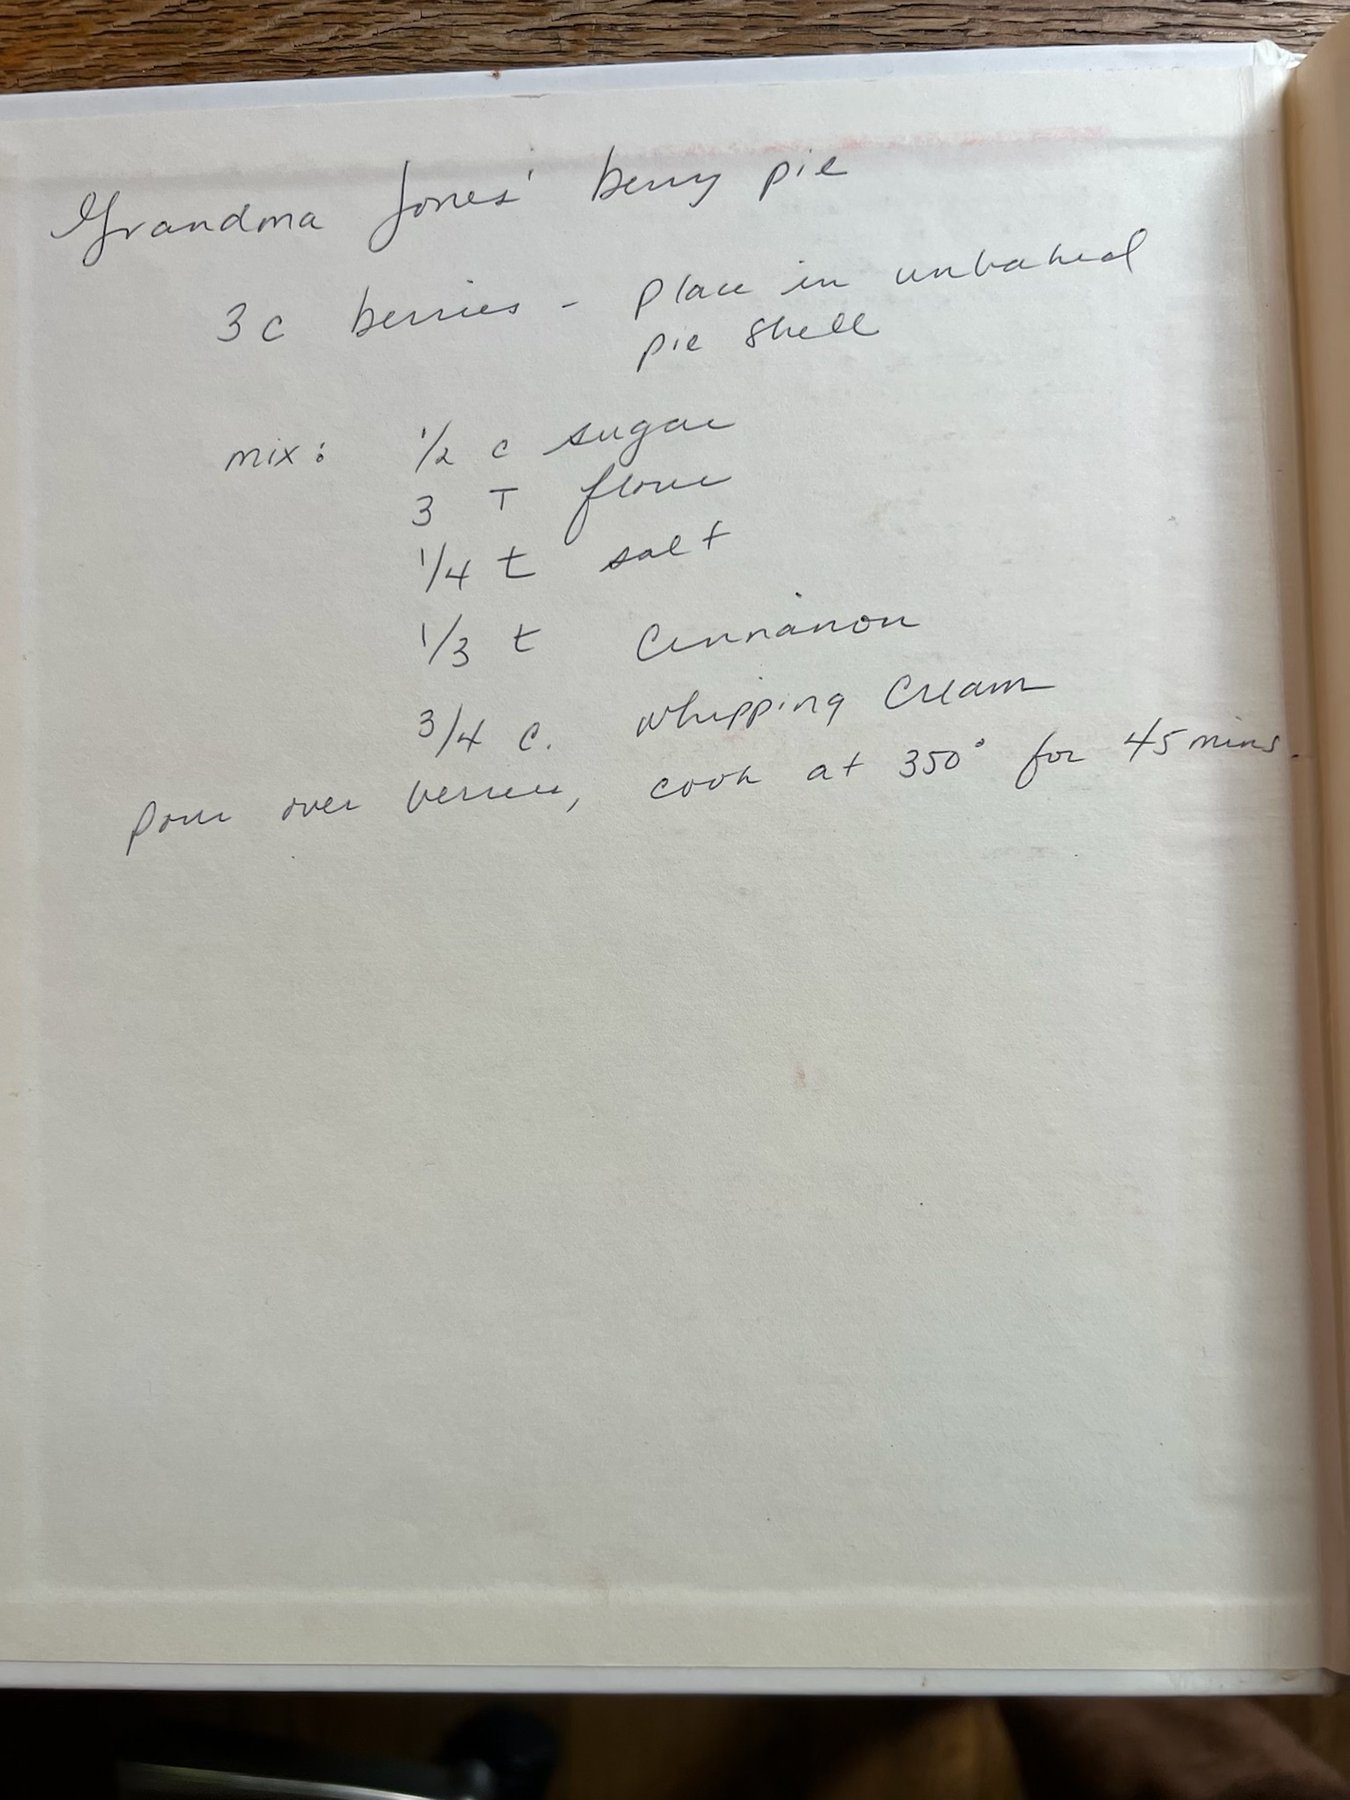 Grandma Jones' berry pie
3 c berries - place in unbaked
pie shell
mix: 1/2 c sugar
3 T flour
1/4 t salt
1/3 t Cinnamon
3/4 c. whipping cream
Pour over berries, cook at 350° for 45 mins.